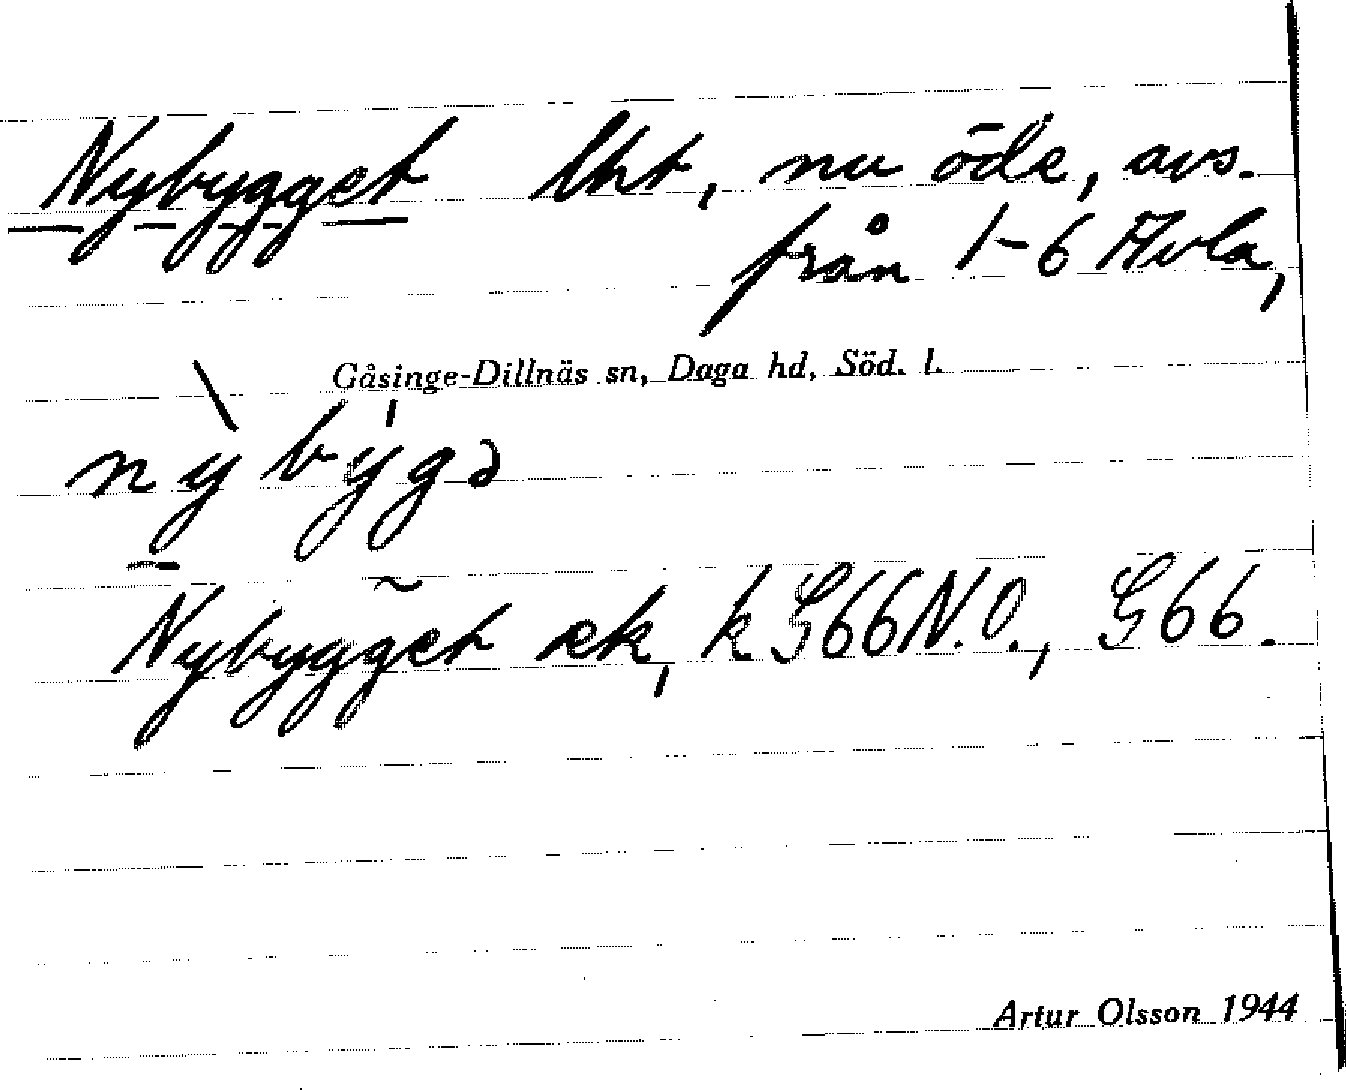 Nybygget lht, nu öde, avs.
från 1-6 Hvla,
Gåsinge-Dillnäs sn, Daga hd, Söd. l.
nỳbýgə
Nybygget ek, k G66N.O., G66.
Artur Olsson 1944